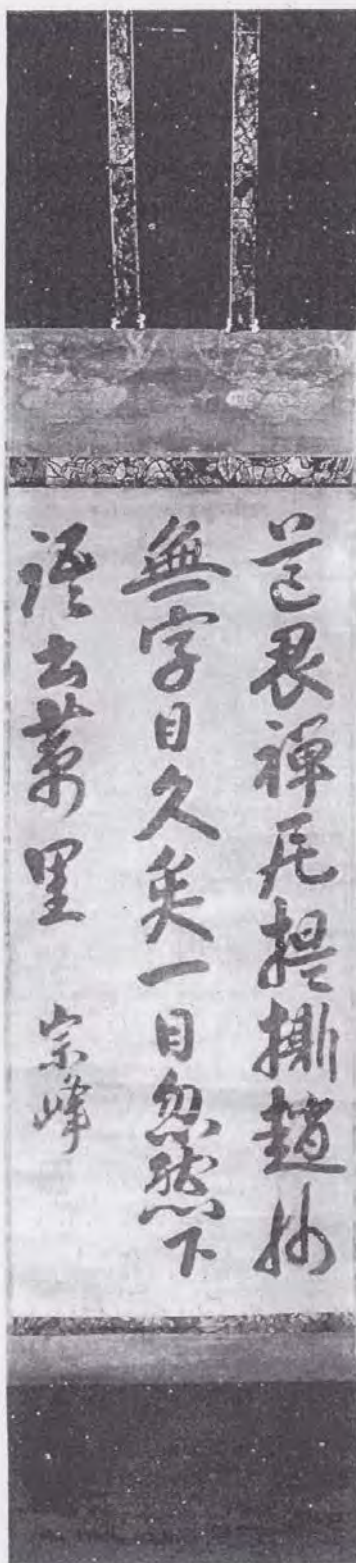 畏禪尼提撕趙州
無字日久矣一日忽然下
語去萬里 宗峰